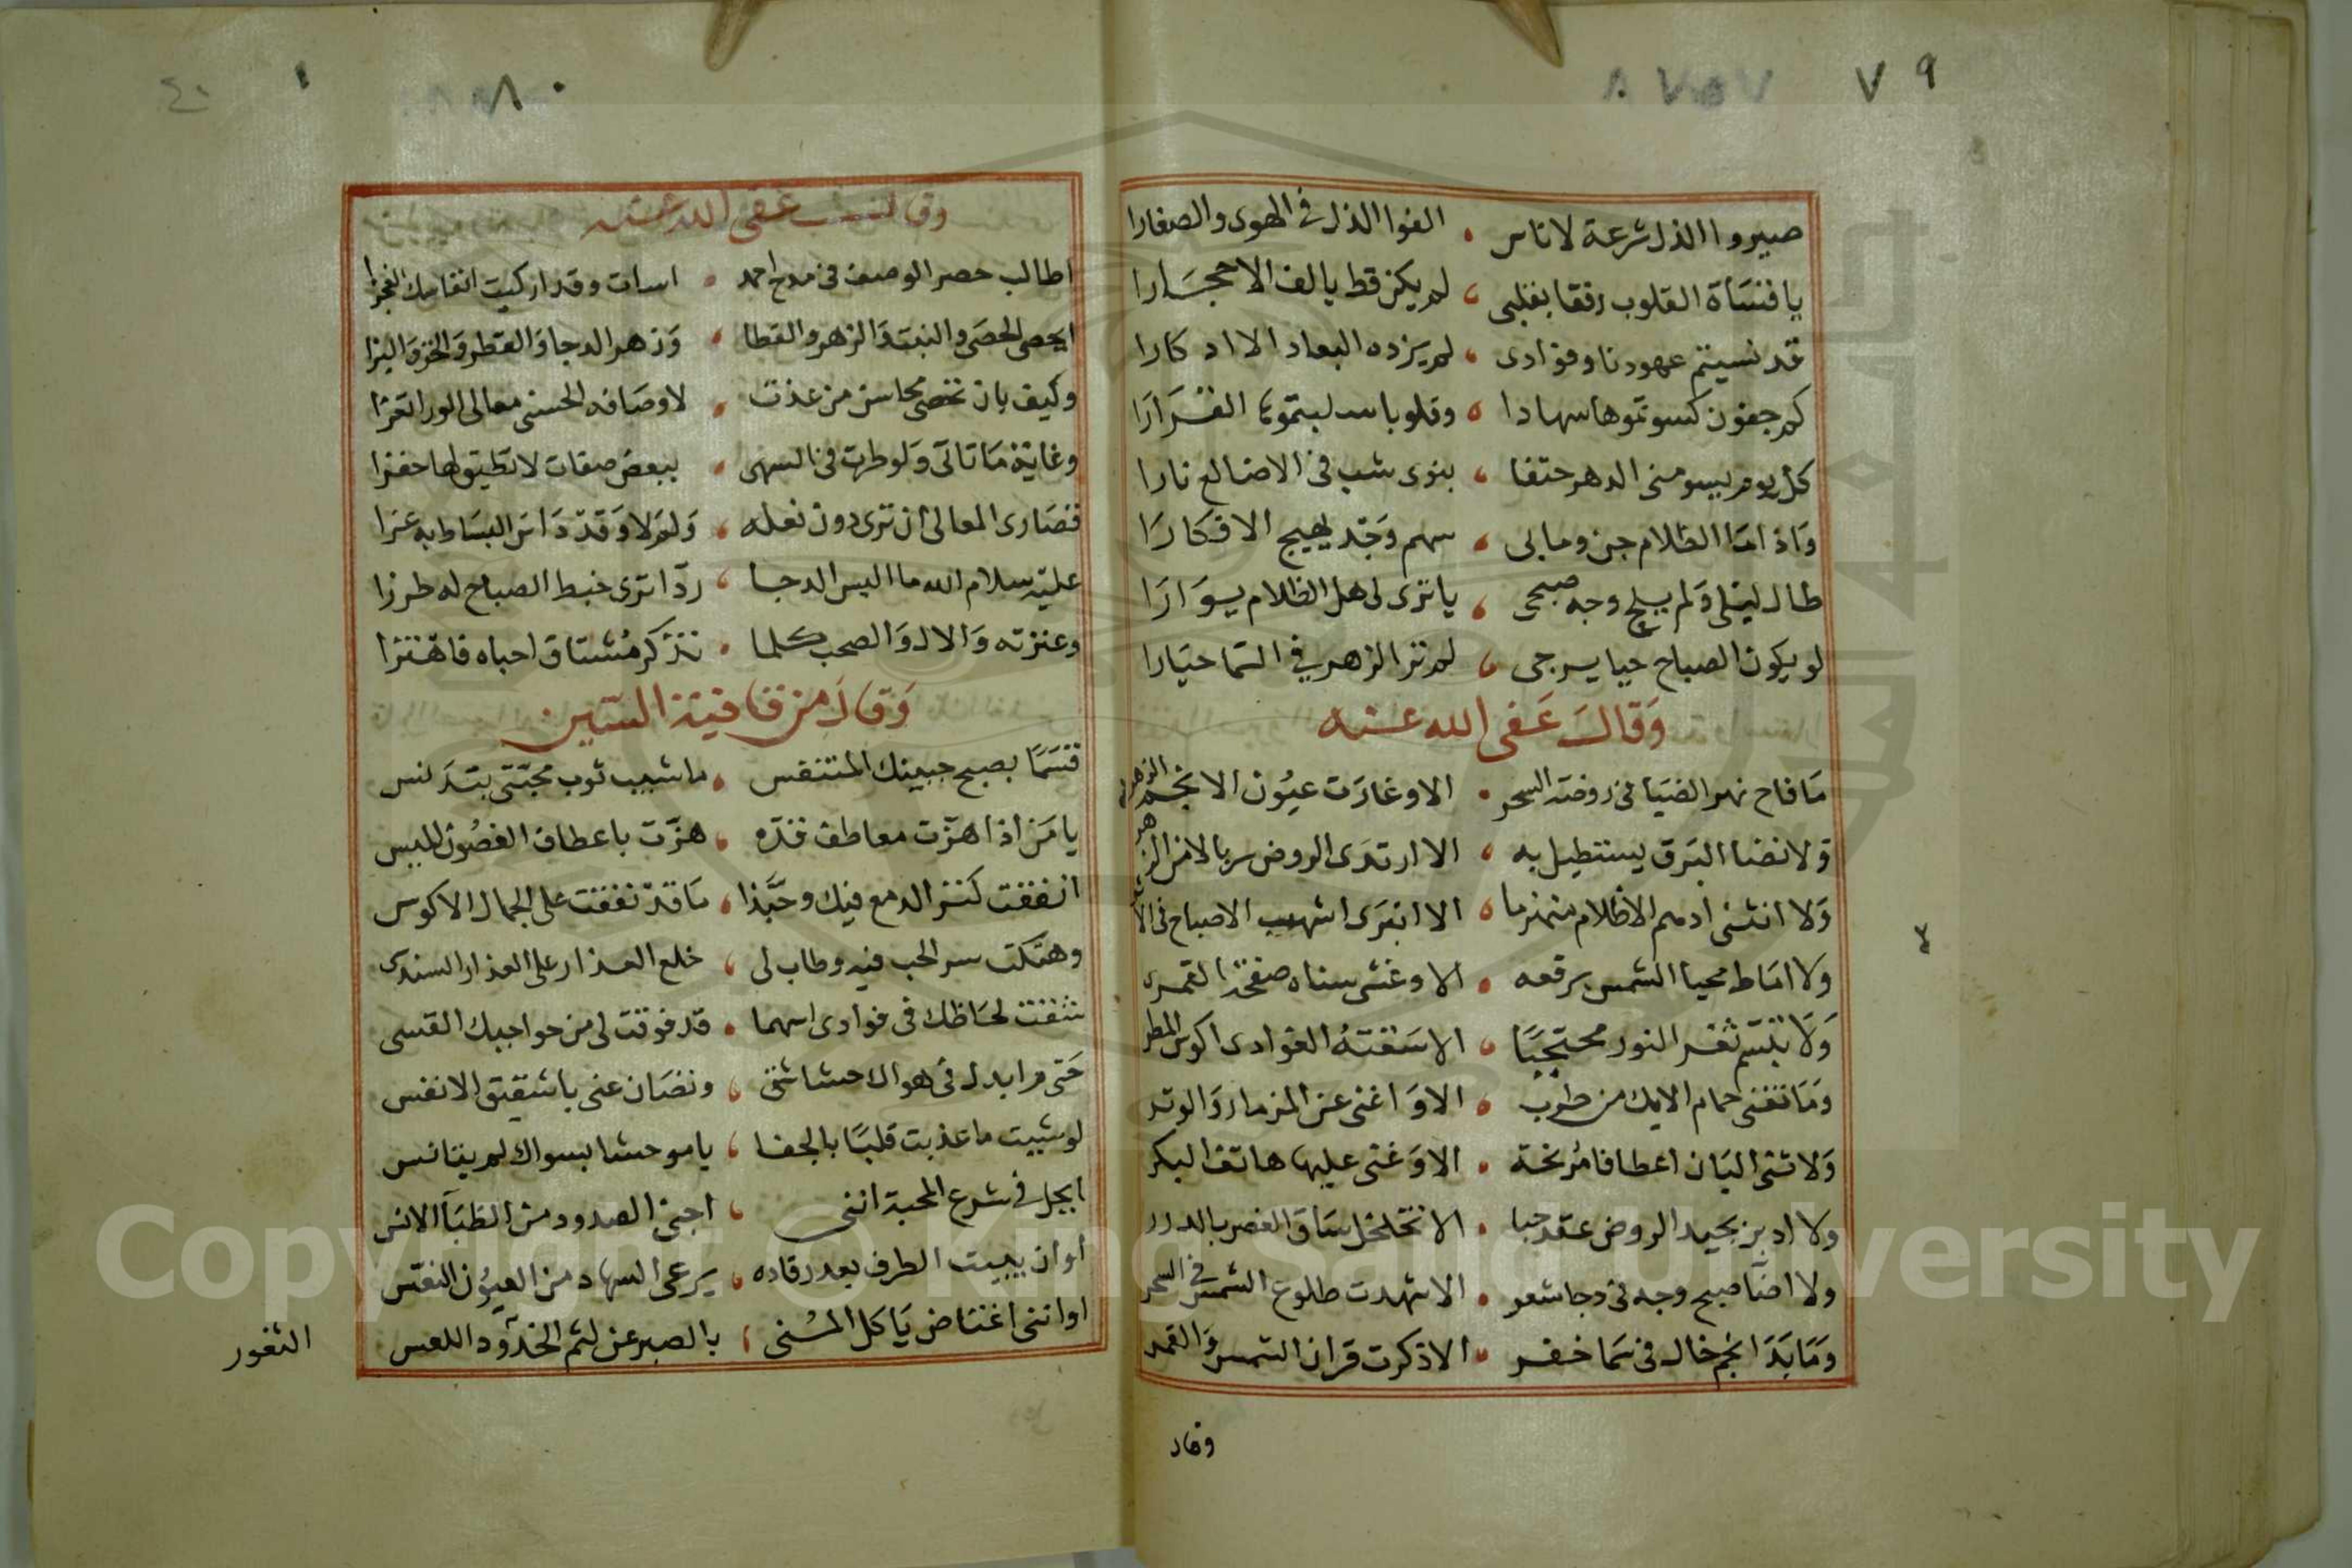 ٧٩
صيروا الذل شرعة لاناس ، الفوا الذل في الهوى والصغارا
يا قساة القلوب رفقا بقلبي ، لم يكن قط يالف الاحجارا
قد نسيتم عهودنا وفوادى ، لم يزده البعاد الا ادكارا
كم جفون كسوتموها سهادا ، وقلوبا سلبتموها القرارا
كل يوم يسومنى الدهر حتفا ، بنوى شب فى الاضالع نارا
واذا ما الظلام جن وما بى ، سهم وجد يهيج الافكارا
طال ليلى ولم يلح وجه صبحى ، يا ترى لى هل الظلام يوارا
لو يكون الصباح حيا يرجى ، لم تر الزهر في السما حيارا
وقال عفى الله عنه
ما فاح نهر الضيا فى روضة السحر ، الا وغارت عيون الانجم الزهر
ولا نضا البرق يستطيل به ، الا ارتدى الروض سربالا من الزهر
ولا انثنى ادهم الاظلام منهزما ، الا انبرى اشهب الاصباح فى الاثر
ولا اماط محيا الشمس برقعه ، الا وغشى سناه صفحة القمر
ولا تبسم ثغر النور محتجبا ، الا سقته الغوادى اكوس المطر
وما تغنى حمام الايك من طرب ، الا واغنى عن المزمار والوتر
ولا ثنى البان اعطافا مرنحة ، الا وغنى عليها هاتف البكر
ولا ادير بجيد الروض عقد حبا ، الا تخلخل ساق الغصن بالدرر
ولا اضا صبح وجه فى دجا شعر ، الا شهدت طلوع الشمس في السحر
وما بدا نجم خال فى سما خفر ، الا ذكرت قران الشمس والقمر
وقال
٨٠
٤١
وقال عفى الله عنه
اطالب حصر الوصف فى مدح احمد ، اسات وقد اركبت انفاسك العجزا
ايحصى الحصى والنبت والزهر والقطا ، وزهر الدجا والقطر والخز والبزا
وكيف بان تحصى محاسن من غدت ، لاوصافه الحسنى معالى الورا تعزا
وغاية ما تاتى ولو طرت فى السهى ، ببعض صفات لا تطيق لها حفزا
فقصارى المعالى ان ترى دون نعله ، ولم لا وقد داس البساط به عزا
عليه سلام الله ما البس الدجا ، ردا ترى خيط الصباح له طرزا
وعترته والال والصحب كلما ، تذكر مشتاق احباه فاهتزا
وقال من قافية السين
قسما بصبح جبينك المتنفس ، ما شيب ثوب محبتى بتدنس
يا من اذا هزت معاطف قده ، هزت باعطاف الغصون الميس
انفقت كنز الدمع فيك وحبذا ، ما قد نفقت على الجمال الاكوس
وهتكت سر الحب فيه وطاب لى ، خلع العذار على العذار السندسى
نثفت لحاظك فى فوادى اسهما ، قد فوقت لى من حواجبك القسى
حتى م ابدل فى هواك حشاشتى ، وتصان عنى يا شقيق الانفس
لو شيت ما عذبت قلبا بالجفا ، يا موحشا بسواك لم يتانس
ايحل فى شرع المحبة اننى ، اجنى الصدود من الظبا الانس
او ان يبيت الطرف بعد رقاده ، يرعى السهاد من العيون النعس
او اننى اعتاض يا كل المنى ، بالصبر عن لثم الخدود اللعس
الثغور
Copyright © King Saud University